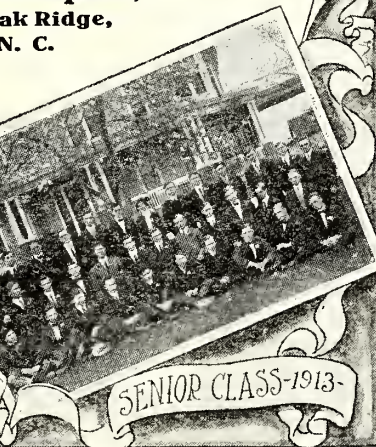 ak Ridge,
N. C.
SENIOR CLASS-1913-